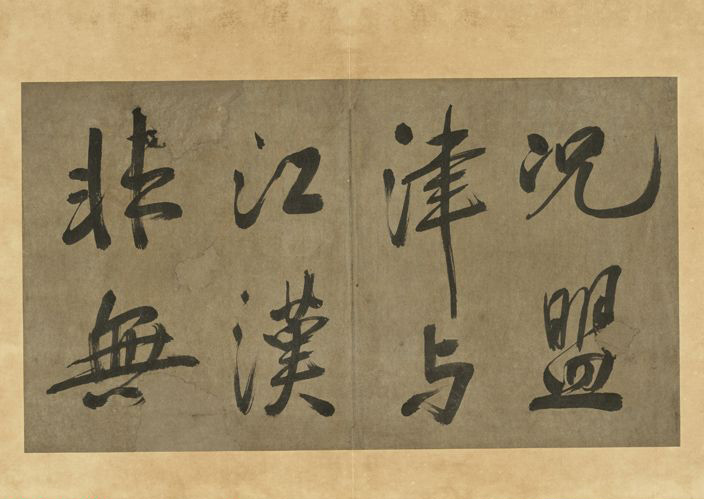 况盟
津与
江漢
非無